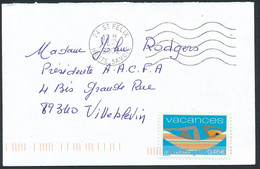 74 ST FELIX
HTE-SAVOIE
Madame Rodgers
Présidente A.A.C.F.A
4 Bis Grande Rue
89340 Villeblevin
vacances
0,46€